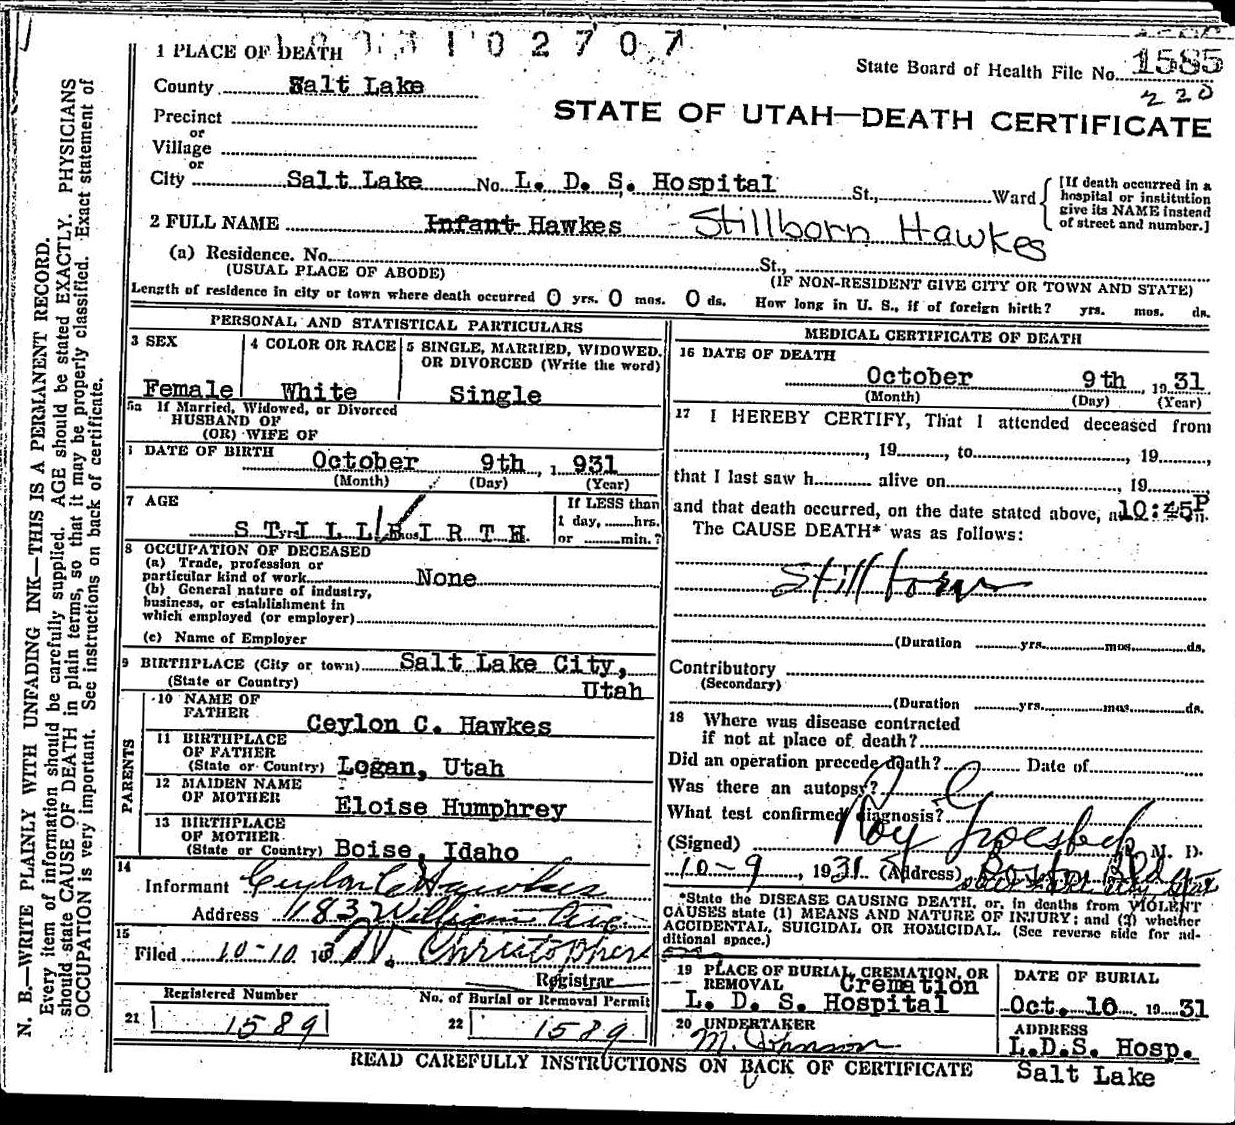 1 PLACE OF DEATH
1 0 2 7 0 7
State Board of Health File No. 1585
220
County Salt Lake
STATE OF UTAH—DEATH CERTIFICATE
Precinct
or
Village
or
City Salt Lake No. L. D. S. Hospital St., Ward
[If death occurred in a hospital or institution give its NAME instead of street and number.]
2 FULL NAME Infant Hawkes - Stillborn Hawkes
(a) Residence. No. St.,
(USUAL PLACE OF ABODE) (IF NON-RESIDENT GIVE CITY OR TOWN AND STATE)
Length of residence in city or town where death occurred 0 yrs. 0 mos. 0 ds. How long in U. S., if of foreign birth? yrs. mos. ds.
PERSONAL AND STATISTICAL PARTICULARS
3 SEX
Female
4 COLOR OR RACE
White
5 SINGLE, MARRIED, WIDOWED, OR DIVORCED (Write the word)
Single
5a If Married, Widowed, or Divorced
HUSBAND OF
(OR) WIFE OF
DATE OF BIRTH October 9th, 1931
(Month) (Day) (Year)
7 AGE
STILLBIRTH
If LESS than
1 day, hrs.
or min.?
8 OCCUPATION OF DECEASED
(a) Trade, profession or
particular kind of work None
(b) General nature of industry,
business, or establishment in
which employed (or employer)
(c) Name of Employer
9 BIRTHPLACE (City or town) Salt Lake City,
(State or Country) Utah
PARENTS
10 NAME OF
FATHER Ceylon C. Hawkes
11 BIRTHPLACE
OF FATHER
(State or Country) Logan, Utah
12 MAIDEN NAME
OF MOTHER Eloise Humphrey
13 BIRTHPLACE
OF MOTHER
(State or Country) Boise, Idaho
14
Informant Ceylon C Hawkes
Address 1832 William Ave
15
Filed 10-10 193 W. Christophers
Registrar
Registered Number
21 1589
No. of Burial or Removal Permit
22 1589
MEDICAL CERTIFICATE OF DEATH
16 DATE OF DEATH
October 9th, 1931
(Month) (Day) (Year)
17 I HEREBY CERTIFY, That I attended deceased from
, 19 , to , 19 ,
that I last saw h alive on , 19
and that death occurred, on the date stated above, at 10:45P m.
The CAUSE DEATH* was as follows:
Stillborn
(Duration yrs. mos. ds.
Contributory
(Secondary)
(Duration yrs. mos. ds.
18 Where was disease contracted
if not at place of death?
Did an operation precede death? Date of
Was there an autopsy?
What test confirmed diagnosis?
(Signed) Roy Groesbeck M. D.
10-9, 1931 (Address) Boston Bldg
*State the DISEASE CAUSING DEATH, or, in deaths from VIOLENT
CAUSES state (1) MEANS AND NATURE OF INJURY; and (2) whether
ACCIDENTAL, SUICIDAL OR HOMICIDAL. (See reverse side for ad-
ditional space.)
19 PLACE OF BURIAL, CREMATION, OR
REMOVAL Cremation
L. D. S. Hospital
DATE OF BURIAL
Oct. 10 1931
20 UNDERTAKER
M. Johnson
ADDRESS
L.D.S. Hosp.
Salt Lake
READ CAREFULLY INSTRUCTIONS ON BACK OF CERTIFICATE
N. B.—WRITE PLAINLY WITH UNFADING INK—THIS IS A PERMANENT RECORD.
Every item of information should be carefully supplied. AGE should be stated EXACTLY. PHYSICIANS
should state CAUSE OF DEATH in plain terms, so that it may be properly classified. Exact statement of
OCCUPATION is very important. See instructions on back of certificate.